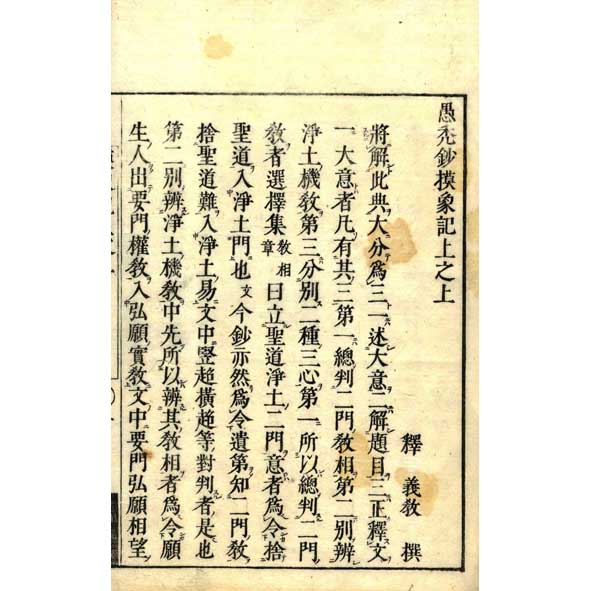 愚禿鈔摸象記上之上
釋義教撰
將解此典大分爲三一述大意二解題目三正釋文
一大意者凡有其三第一總判二門教相第二別辨
淨土機教第三分別二種三心第一所以總判二門
教者選擇集教相章曰立聖道淨土二門意者爲令捨
聖道入淨土門也文今鈔亦然爲令遺第知二門教
捨聖道難入淨土易文中竪超橫超等對判者是也
第二別辨淨土機教中先所以辨其教相者爲令願
生人出要門權教入弘願實教文中要門弘願相望